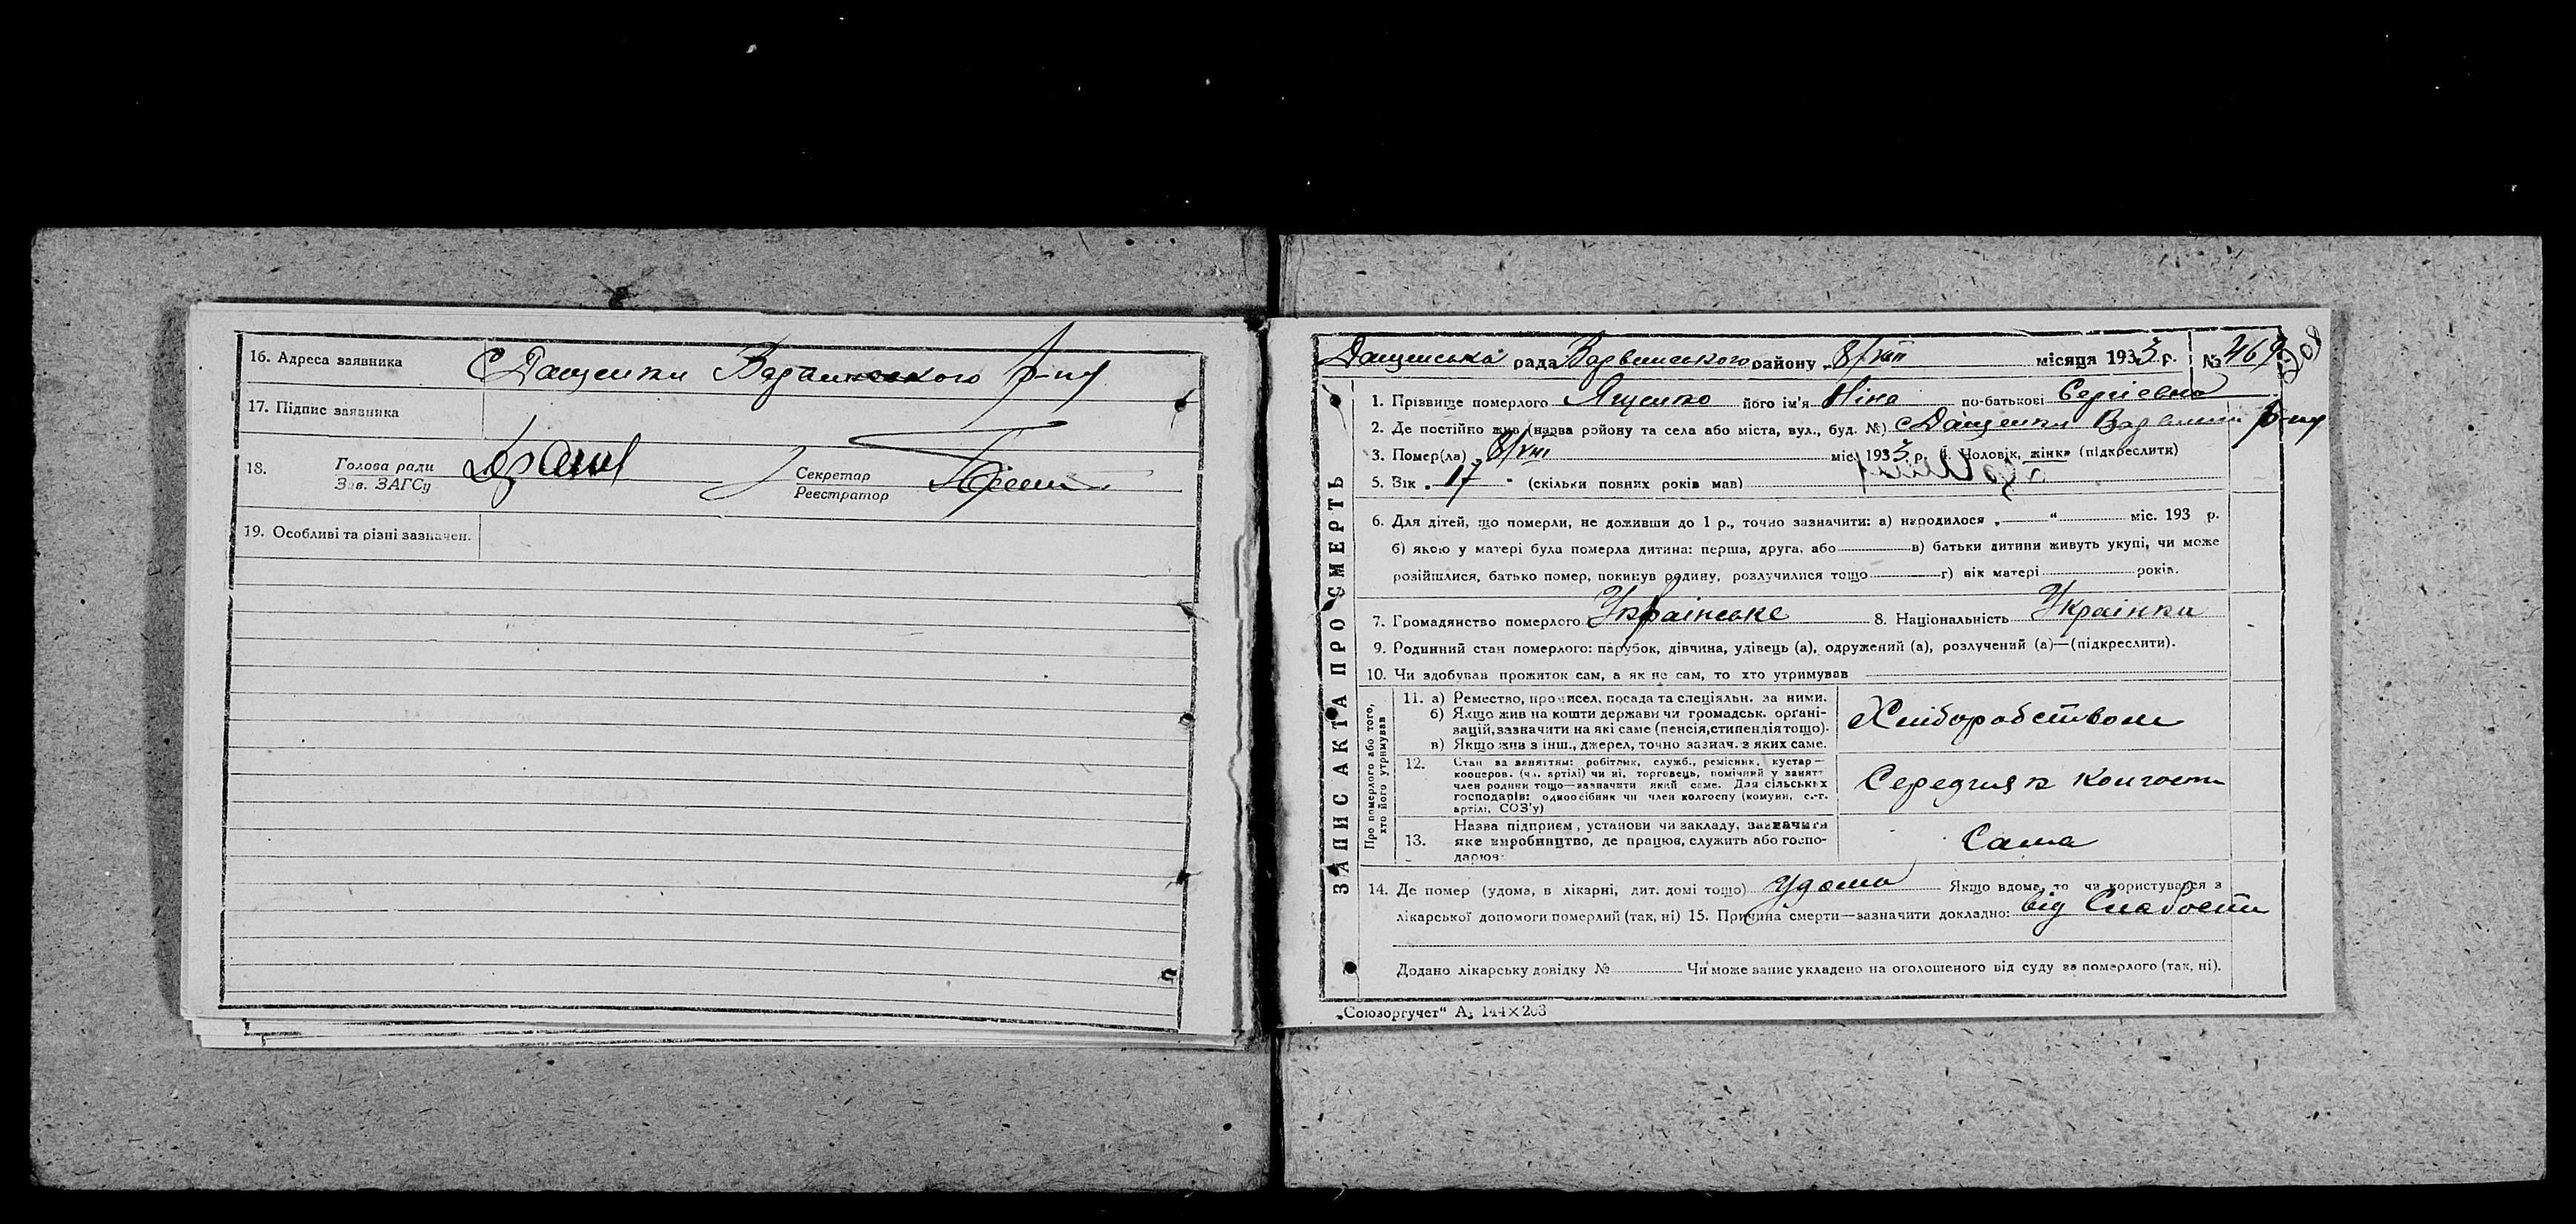 16. Адреса заявника С Дащенки Варвинського р-ну
17. Підпис заявника
18. Голова ради
Зав. ЗАГСу
Секретар
Реєстратор
19. Особливі та різні зазначен.
Дащенська рада Варвинського району „8/VIII місяця 1933 р. №
ЗАПИС АКТА ПРО СМЕРТЬ
1. Прізвище померлого Ященко його ім'я Ніна по-батькові Сергіевна
2. Де постійно жив (назва ройону та села або міста, вул., буд. №) с Дащенки Варвин р-ну
3. Помер(ла) „8/VIII міс. 1933 р. 4. Чоловік, жінка (підкреслити)
5. Вік „17" (скільки повних років мав)
6. Для дітей, що померли, не доживши до 1 р., точно зазначити: а) народилося „ — “ міс. 193 р.
б) якою у матері була померла дитина: перша, друга, або в) батьки дитини живуть укупі, чи може
розійшлися, батько помер, покинув родину, розлучилися тощо г) вік матері років.
7. Громадянство померлого Українське 8. Національність Українка
9. Родинний стан померлого: парубок, дівчина, удівець (а), одружений (а), розлучений (а)—(підкреслити).
10. Чи здобував прожиток сам, а як не сам, то хто утримував
Про померлого або того,
хто його утримував
11. а) Ремество, промисел, посада та спеціяльн. за ними.
б) Якщо жив на кошти держави чи громадськ. органі-
зацій, зазначити на які саме (пенсія, стипендія тощо).
в) Якщо жив з інш., джерел, точно зазнач. з яких саме.
Хліборобством
12. Стан за заняттям: робітник, служб., ремісник, кустар—
кооперов. (чл. артілі) чи ні, торговець, помічний у занятт
член родини тощо—зазначити який саме. Для сільських
господарів: одноосібник чи член колгоспу (комуни, с.-г.
артілі, СОЗ'у)
Середняк
13. Назва підприєм, установи чи закладу, зазначити
яке виробництво, де працює, служить або госпо-
дарює
Сама
14. Де помер (удома, в лікарні, дит. домі тощо) Удома Якщо вдома, то чи користувався з
лікарської допомоги померлий (так, ні) 15. Причина смерти—зазначити докладно: від Слабости
Додано лікарську довідку № Чи може запис укладено на оголошеного від суду за померлого (так, ні).
„Союзоргучет“ А₅ 144×203